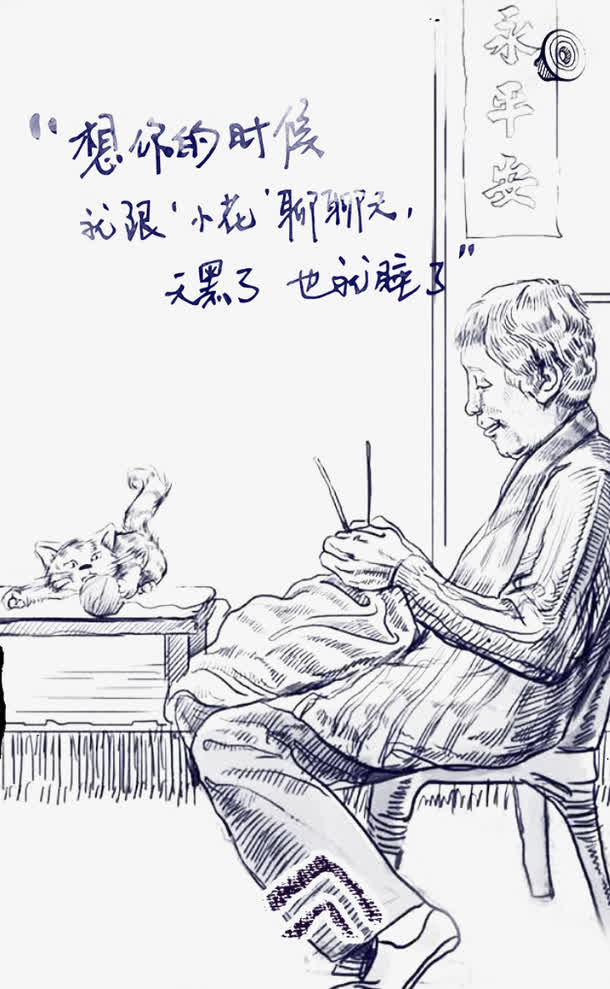 "想你的时候
就跟'小花'聊聊天,
天黑了 也就睡了"
永平安